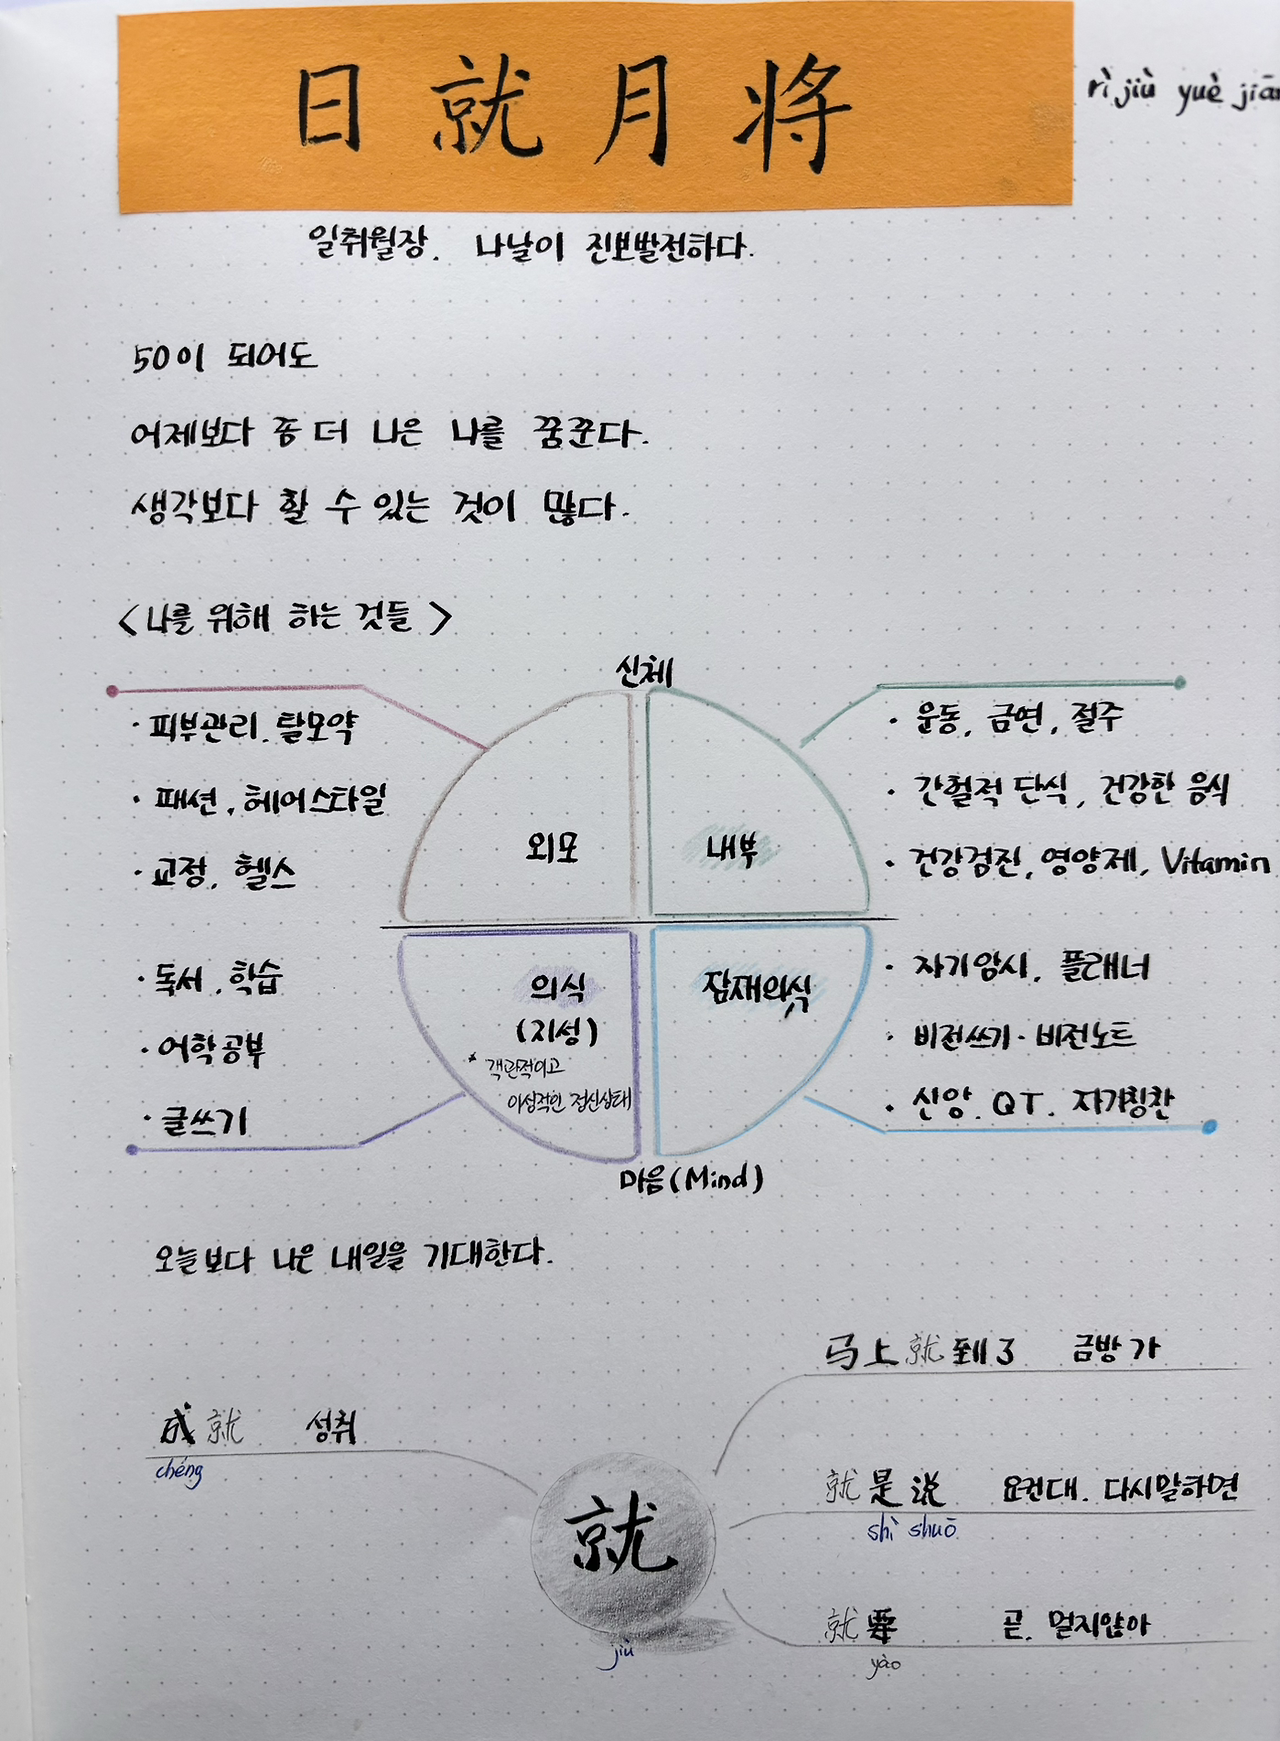 日就月将
rì jiù yuè jiān
일취월장. 나날이 진보발전하다.
50이 되어도
어제보다 좀 더 나은 나를 꿈꾼다.
생각보다 할 수 있는 것이 많다.
<나를 위해 하는 것들>
신체
· 피부관리. 탈모약
· 패션, 헤어스타일
· 교정, 헬스
외모
내부
· 운동, 금연, 절주
· 간헐적 단식, 건강한 음식
· 건강검진, 영양제, Vitamin
· 독서, 학습
· 어학공부
· 글쓰기
의식
(지성)
* 객관적이고
이성적인 정신상태
잠재의식
· 자기암시, 플래너
· 비전쓰기 · 비전노트
· 신앙. QT. 자기칭찬
마음(Mind)
오늘보다 나은 내일을 기대한다.
马上就到了 금방 가
成就 성취
chéng
就是说 요컨대. 다시말하면
shì shuō
就
jiù
就要 곧. 멀지않아
yào